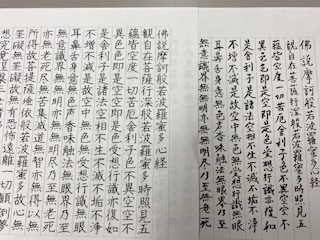 佛說摩訶般若波羅蜜多心経
観自在菩薩行深般若波羅蜜多時照見五
蘊皆空度一切苦厄舎利子色不異空空不
異色色即是空空即是色受想行識亦復如
是舎利子是諸法空相不生不滅不垢不浄
不増不減是故空中無色無受想行識無眼
耳鼻舌身意無色声香味触法無眼界乃至
無意識界無無明亦無無明尽乃至無老死
佛說摩訶般若波羅蜜多心経
観自在菩薩行深般若波羅蜜多時照見五
蘊皆空度一切苦厄舎利子色不異空空不
異色色即是空空即是色受想行識亦復如
是舎利子是諸法空相不生不滅不垢不浄
不増不減是故空中無色無受想行識無眼
耳鼻舌身意無色声香味触法無眼界乃至
無意識界無無明亦無無明尽乃至無老死
亦無老死尽無苦集滅道無智亦無得以無
所得故菩提薩埵依般若波羅蜜多故心無
罣礙無罣礙故無有恐怖遠離一切顛倒夢
想究竟涅槃三世